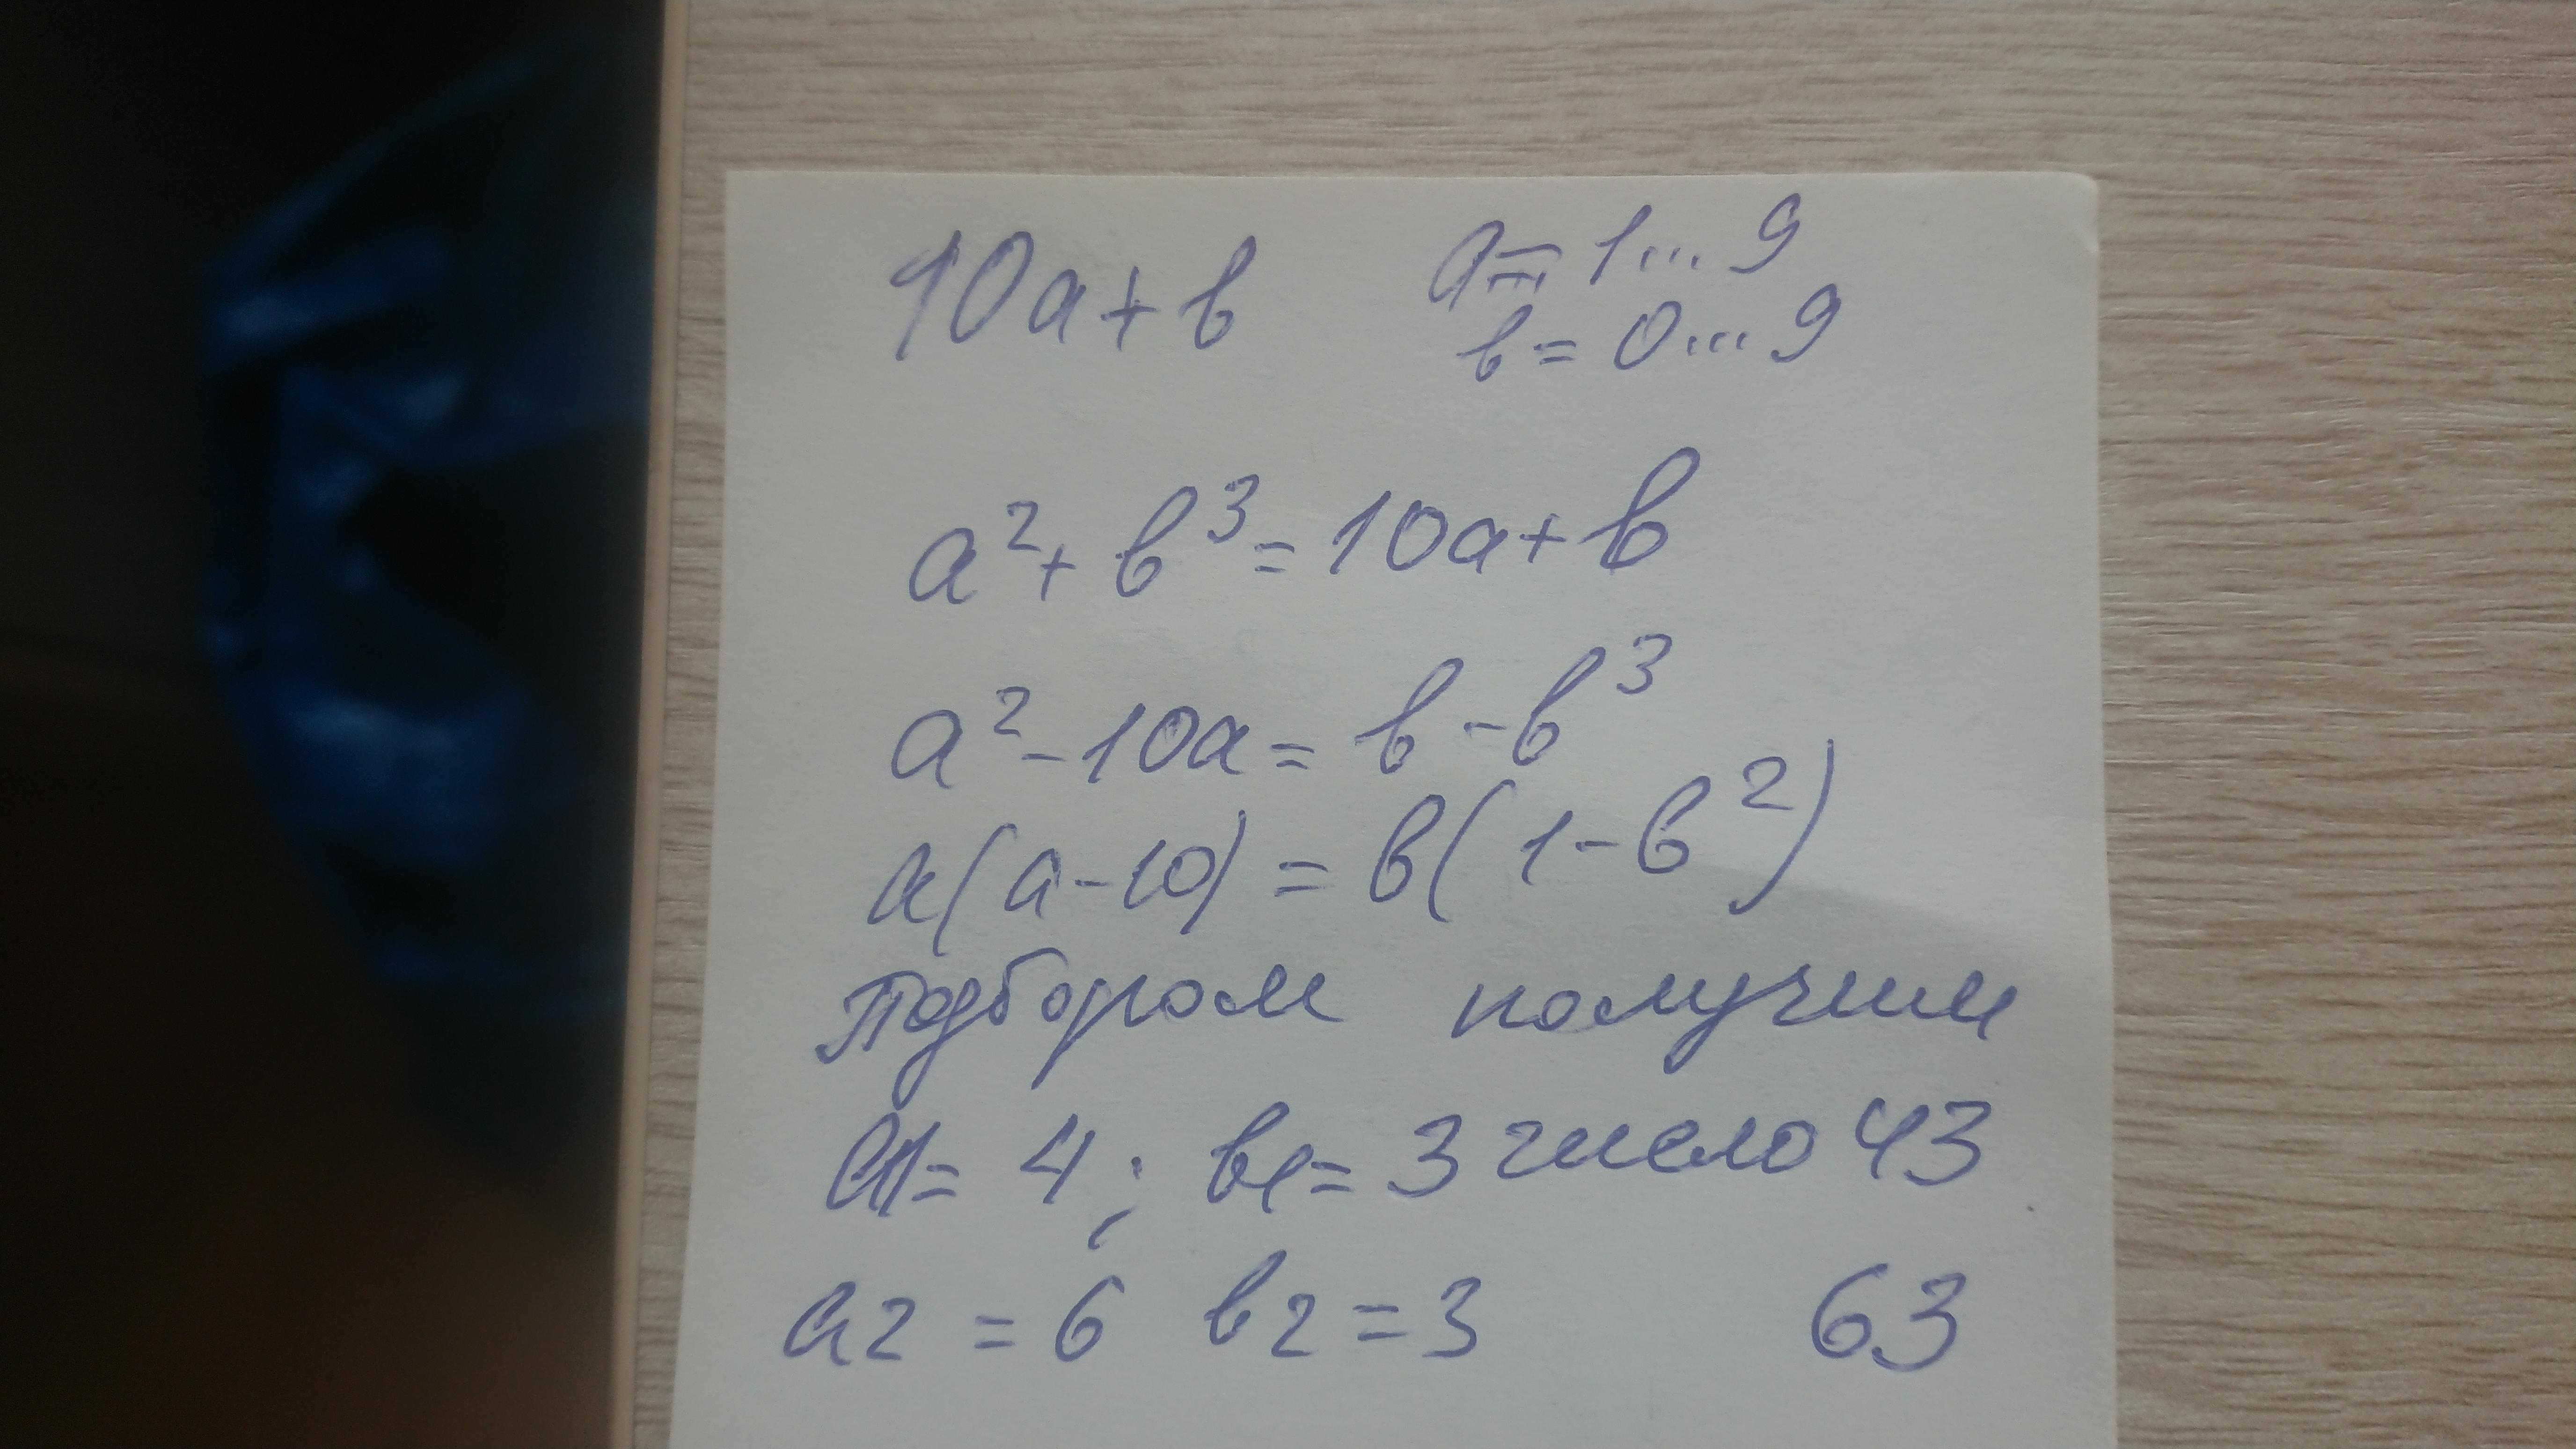 10a+b a=1...9
b=0...9
a²+b³=10a+b
a²-10a=b-b³
a(a-10)=b(1-b²)
Подбором получим
a1=4; b1=3 число 43
a2=6 b2=3 63